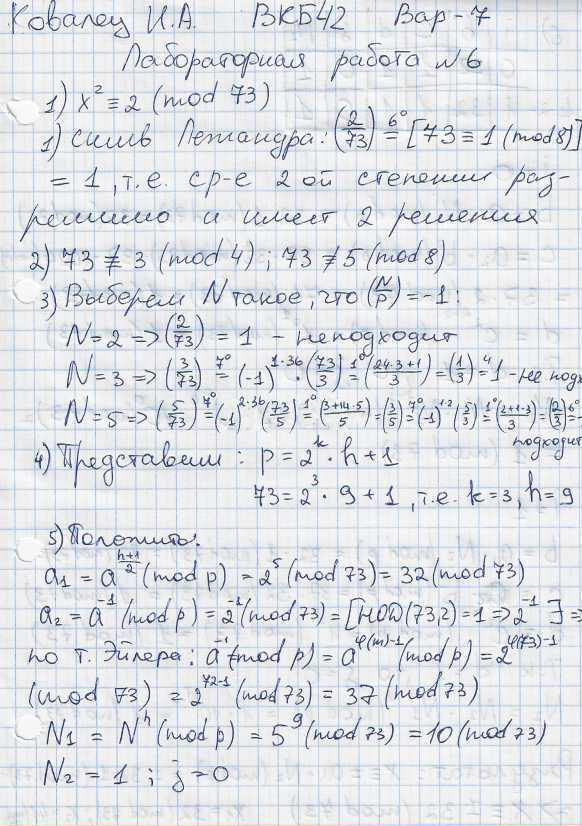 Ковалец И.А. ВКБ42 Вар-7
Лабораторная работа №6
1) x² ≡ 2 (mod 73)
1) Символ Лежандра: (2/73) =^{6°} [73 ≡ 1 (mod 8)]
= 1, т.е. ср-е 2 ой степени раз-
решимо и имеет 2 решения
2) 73 ≢ 3 (mod 4); 73 ≢ 5 (mod 8)
3) Выберем N такое, что (N/p) = -1:
N = 2 => (2/73) = 1 - неподходит
N = 3 => (3/73) =^{7°} (-1)^{1·36} · (73/3) =^{1°} ((24·3+1)/3) = (1/3) =^{4} 1 - не подх
N = 5 => (5/73) =^{7°} (-1)^{2·36} (73/5) =^{1°} ((3+14·5)/5) = (3/5) =^{7°} (-1)^{1·2} (5/3) =^{1°} ((2+1·3)/3) = (2/3) =^{6°} -
подходит
4) Представим: p = 2^k · h + 1
73 = 2³ · 9 + 1, т.е. k = 3, h = 9
5) Положить:
a₁ = a^{(h+1)/2} (mod p) = 2⁵ (mod 73) = 32 (mod 73)
a₂ = a⁻¹ (mod p) = 2⁻¹ (mod 73) = [НОД(73,2) = 1 => 2⁻¹ ] =>
по т. Эйлера: a⁻¹ (mod p) = a^{φ(m)-1} (mod p) = 2^{φ(73)-1}
(mod 73) = 2^{72-1} (mod 73) = 37 (mod 73)
N₁ = N^h (mod p) = 5⁹ (mod 73) = 10 (mod 73)
N₂ = 1; j = 0